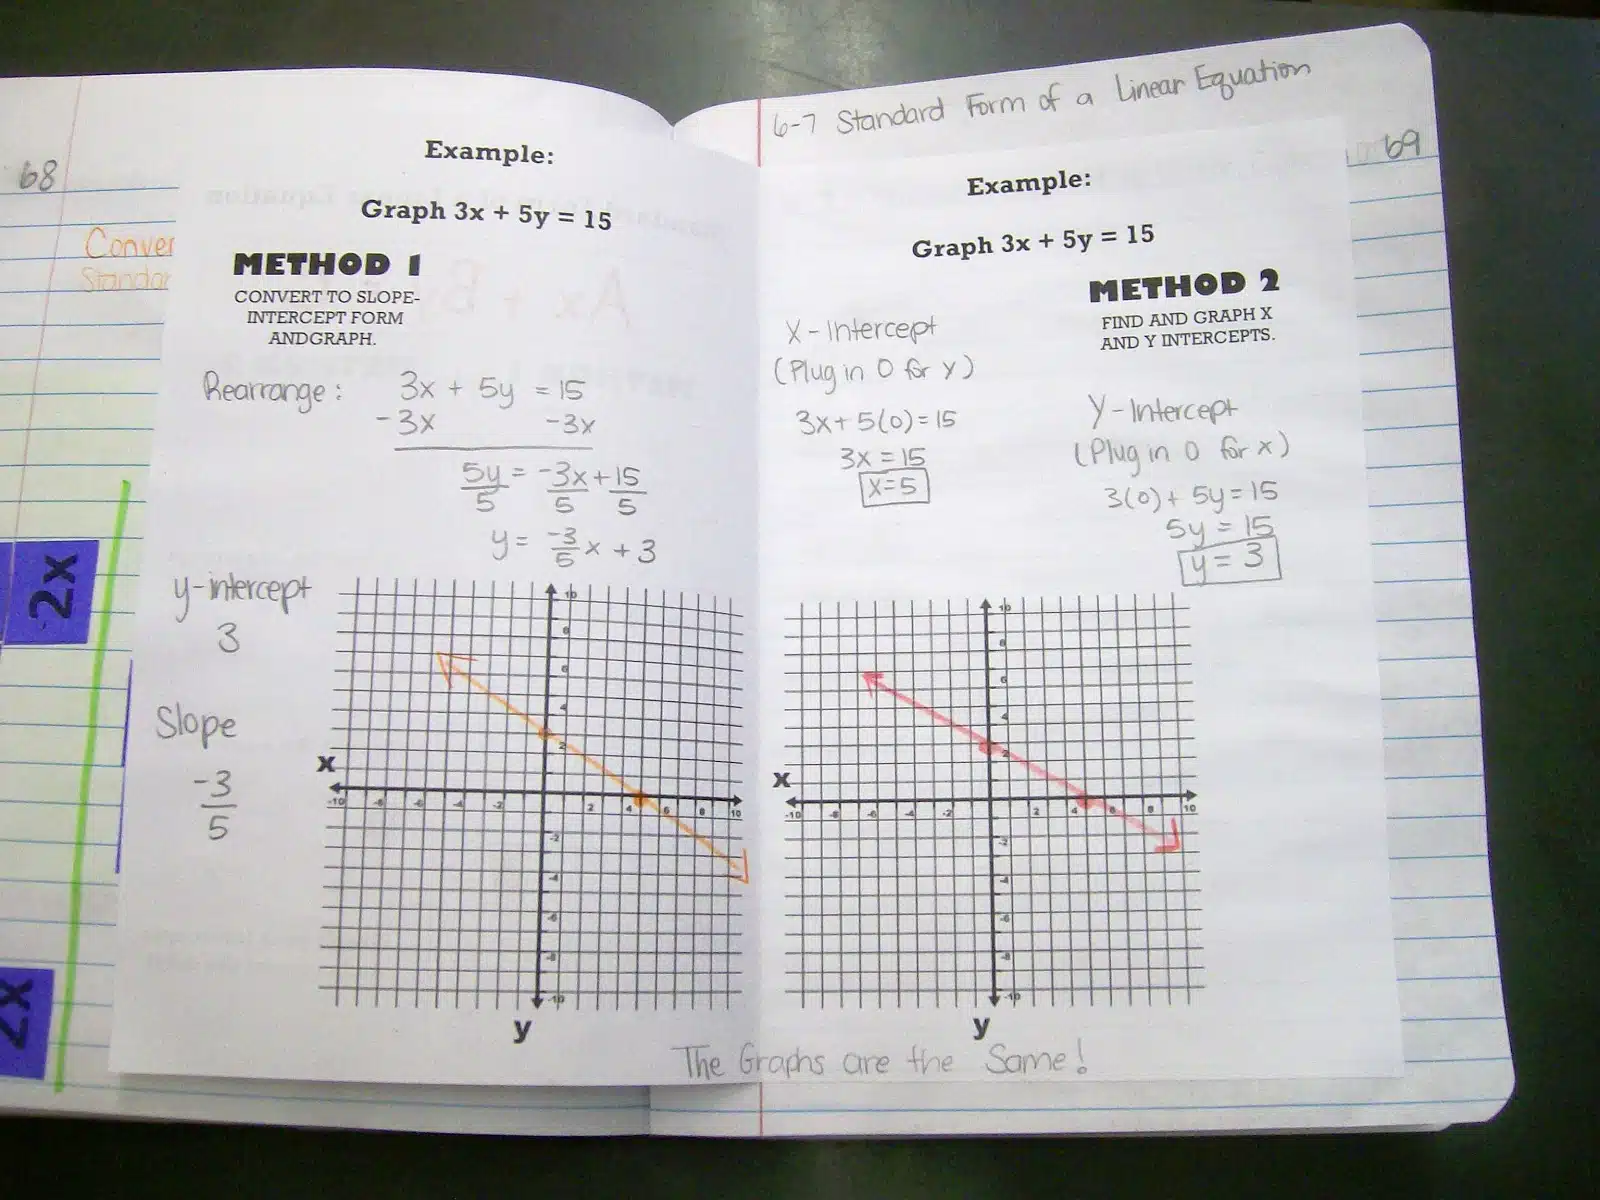 68
Conver
Standar
2x
2x
Example:
Graph 3x + 5y = 15
METHOD 1
CONVERT TO SLOPE-
INTERCEPT FORM
ANDGRAPH.
Rearrange: 3x + 5y = 15
-3x -3x
5y = -3x + 15
5 5 5
y = -3/5 x + 3
y-intercept
3
Slope
-3
5
x
y
10
8
6
4
2
-10 -8 -6 -4 -2 2 4 6 8 10
-2
-4
-6
-8
-10
6-7 Standard Form of a Linear Equation
69
Example:
Graph 3x + 5y = 15
METHOD 2
FIND AND GRAPH X
AND Y INTERCEPTS.
X-Intercept
(Plug in 0 for y)
3x + 5(0) = 15
3x = 15
x = 5
Y-Intercept
(Plug in 0 for x)
3(0) + 5y = 15
5y = 15
y = 3
10
8
6
4
2
x
-10 -8 -6 -4 -2 2 4 6 8 10
-2
-4
-6
-8
-10
y
The Graphs are the Same!